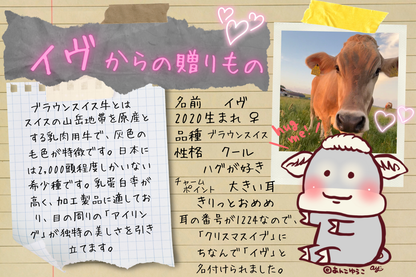 イヴからの贈りもの
ブラウンスイス牛とは
スイスの山岳地帯を原産と
する乳肉用牛で、灰色の
毛色が特徴です。日本に
は2,000頭程度しかいない
希少種です。乳蛋白率が
高く、加工製品に適してお
り、目の周りの「アイリン
グ」が独特の美しさを引き
立てます。
名前 イヴ
2020生まれ ♀
品種 ブラウンスイス
性格 クール
ハグが好き
チャームポイント 大きい耳
きりっとおめめ
耳の番号が1224なので、
「クリスマスイブ」に
ちなんで「イヴ」と
名付けられました。
hug
me!
©あんこゆうこ